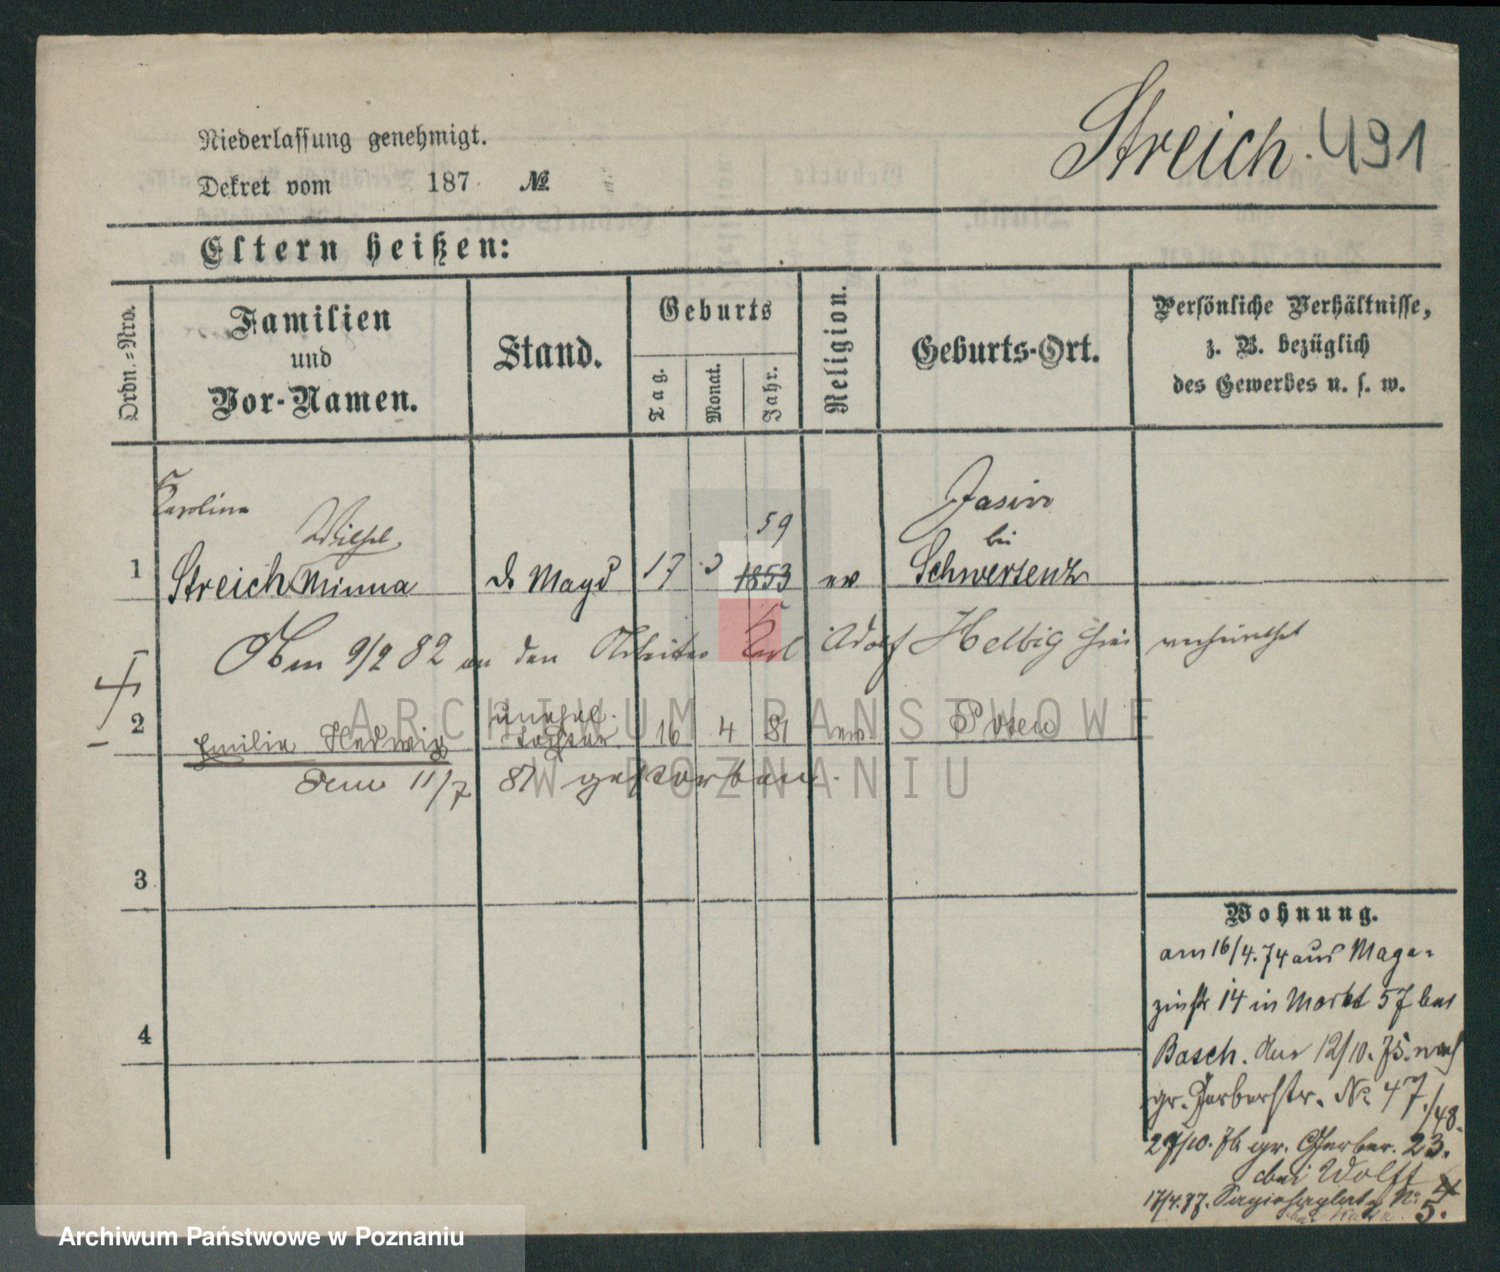 Streich. 491
Niederlassung genehmigt.
Dekret vom 187 №
Eltern heißen:
Ordn.-Nro.
Familien
und
Vor-Namen.
Stand.
Geburts
Tag.
Monat.
Jahr.
Religion.
Geburts-Ort.
Persönliche Verhältnisse,
z. B. bezüglich
des Gewerbes u. s. w.
Karoline
Wilhel.
59
Jasin
bei
1 Streich Minna d. Magd 17 1853 ev Schwersenz
9/2 82 an den Arbeiter Karl Adolf Helbig hier verheirathet
2 Emilie Hedwig unehel. Tochter 16 4 81 ev Posen
Den 11/7 81 gestorben.
3
4
Wohnung.
am 16/4. 74 aus Maga-
zinstr 14 in Markt 57 bei
Basch. 12/10. 75. nach
gr. Gerberstr. No 47/48.
10. 76 gr. Gerber. 23.
bei Wolff
17/4. 77. No 4
5.
ARCHIWUM PAŃSTWOWE
W POZNANIU
Archiwum Państwowe w Poznaniu